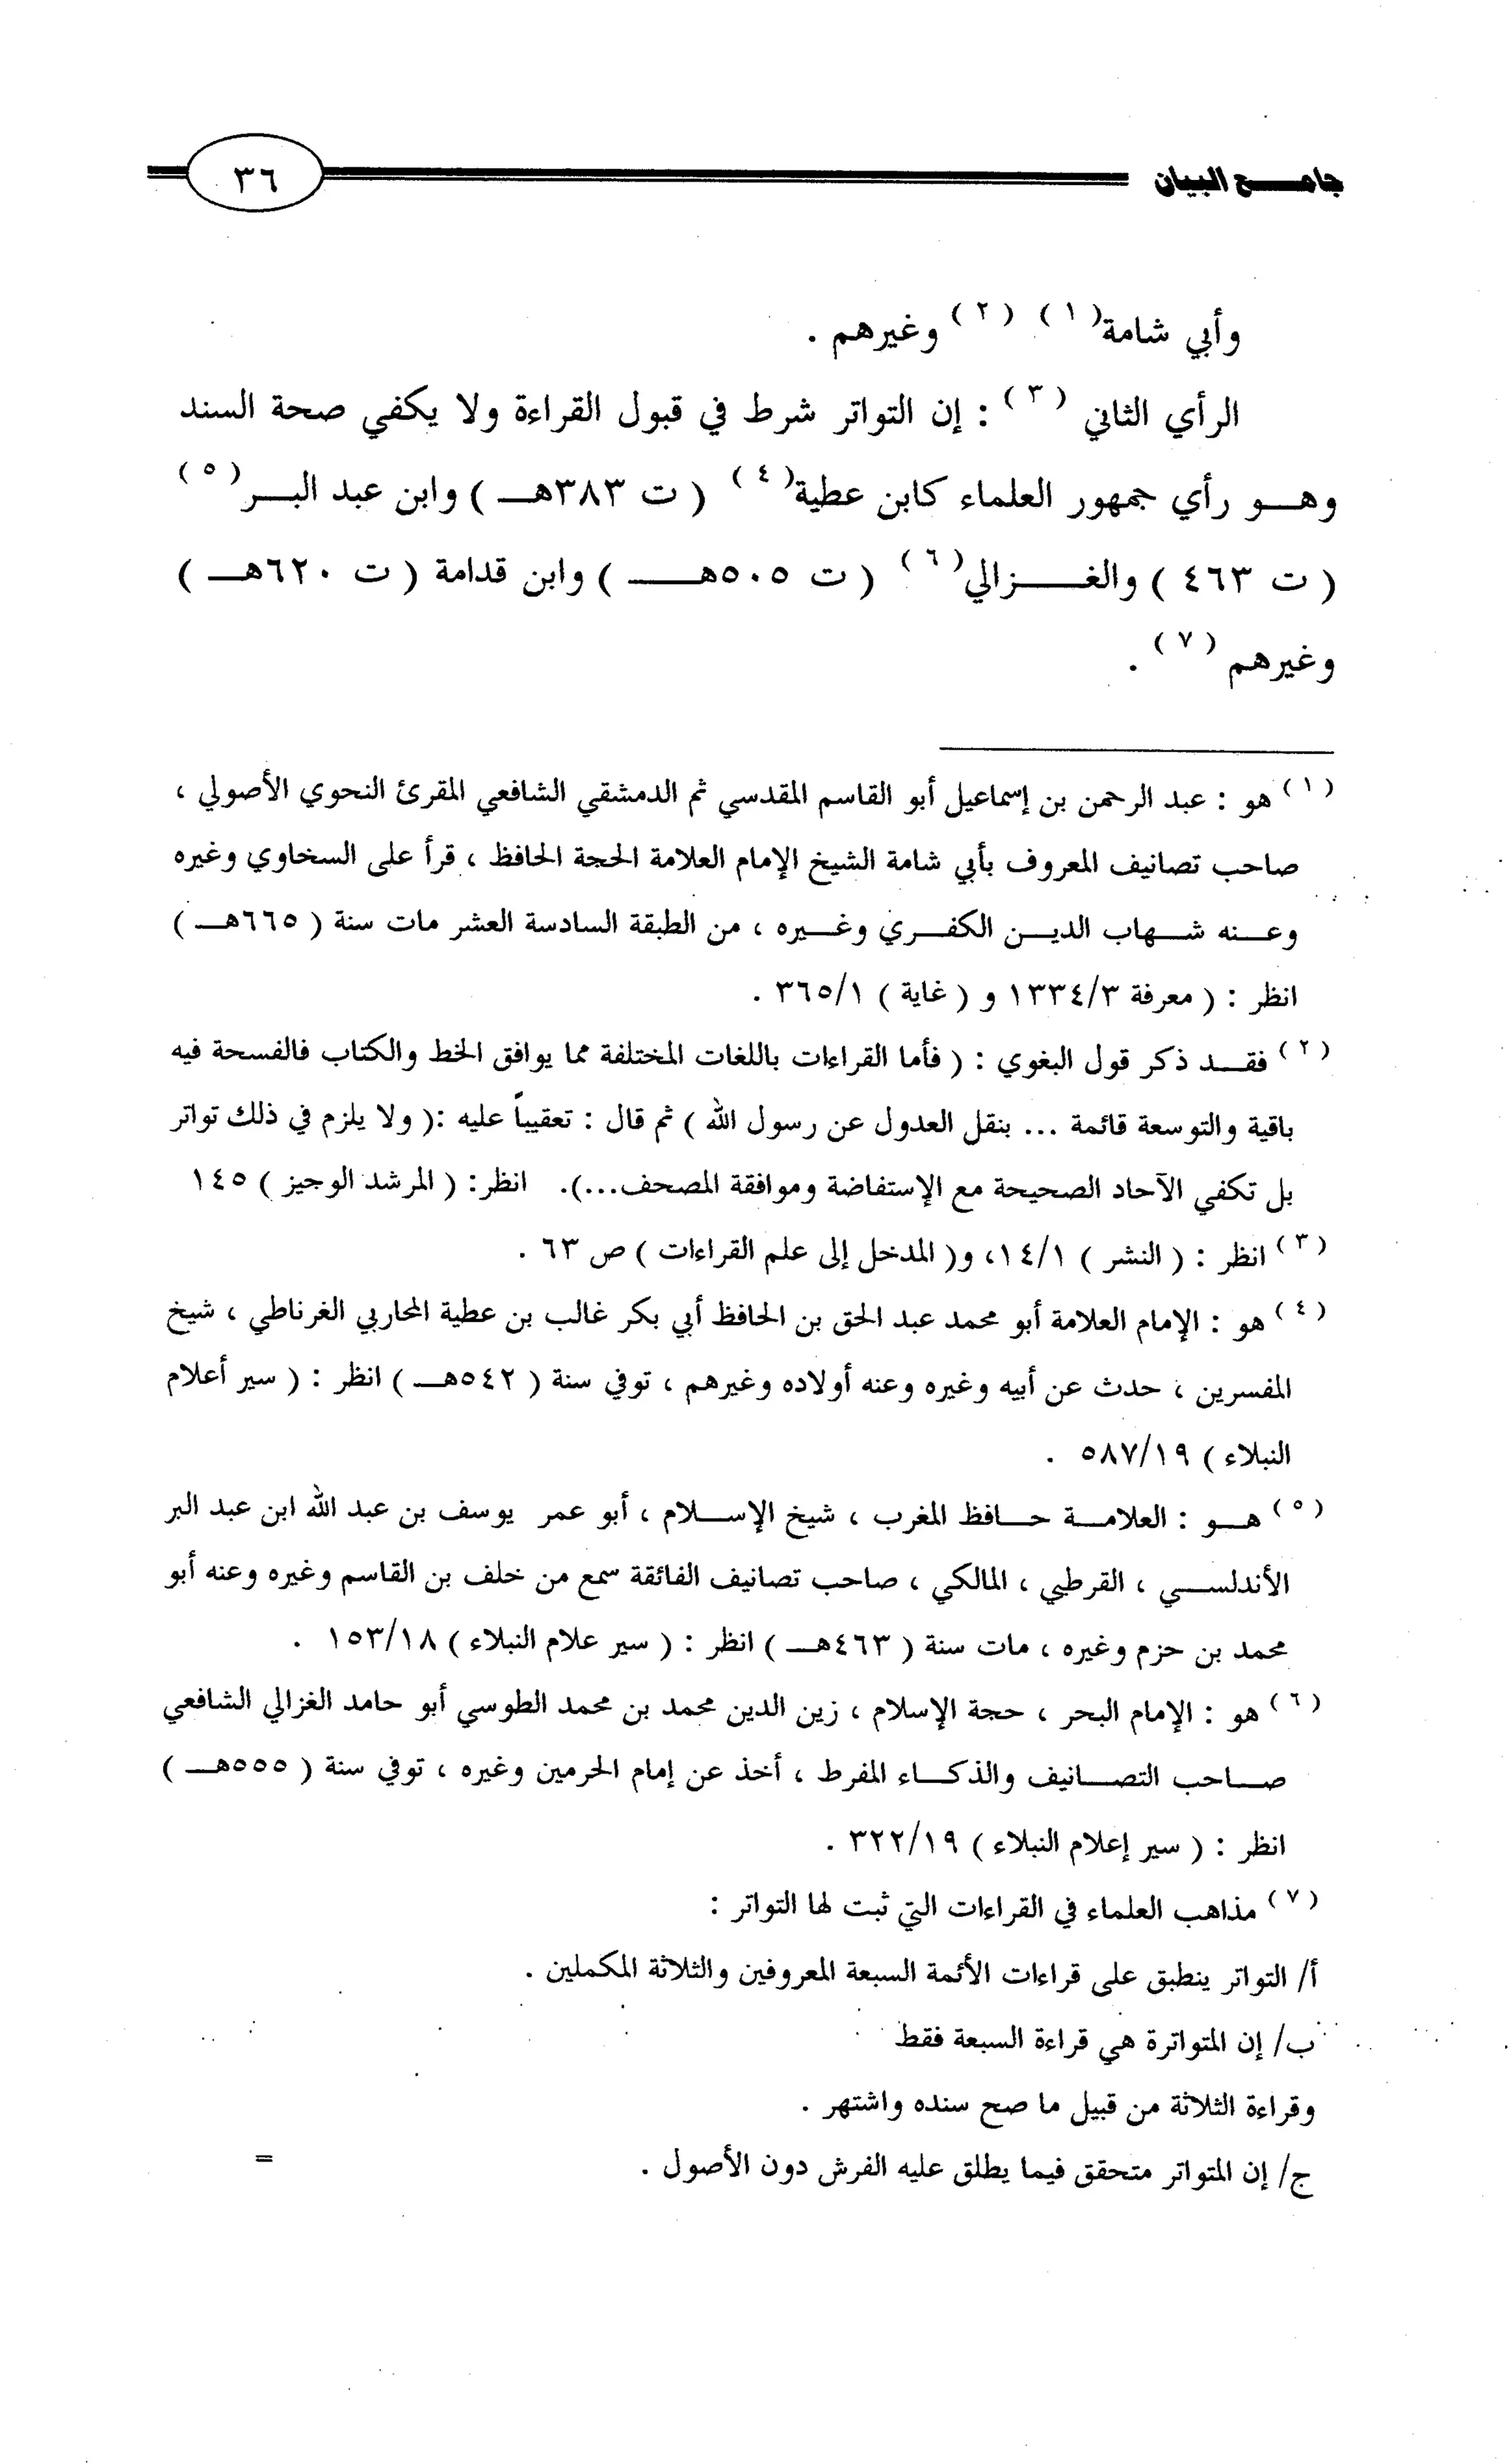 جامع البيان ٣٦
وأبي شامة(١) (٢) وغيرهم .
الرأي الثاني (٣) : إن التواتر شرط في قبول القراءة ولا يكفي صحة السند
وهو رأي جمهور العلماء كابن عطية(٤) ( ت ٣٨٣هـ ) وابن عبد البر(٥)
( ت ٤٦٣ ) والغزالي(٦) ( ت ٥٠٥هـ ) وابن قدامة ( ت ٦٢٠هـ )
وغيرهم (٧) .
(١) هو : عبد الرحمن بن إسماعيل أبو القاسم المقدسي ثم الدمشقي الشافعي المقرئ النحوي الأصولي ،
صاحب تصانيف المعروف بأبي شامة الشيخ الإمام العلامة الحجة الحافظ ، قرأ على السخاوي وغيره
وعنه شهاب الدين الكفري وغيره ، من الطبقة السادسة العشر مات سنة ( ٦٦٥هـ )
انظر : ( معرفة ١٣٣٤/٣ و ( غاية ) ٣٦٥/١ .
(٢) فقد ذكر قول البغوي : ( فأما القراءات باللغات المختلفة مما يوافق الخط والكتاب فالفسحة فيه
باقية والتوسعة قائمة ... بنقل العدول عن رسول الله ) ثم قال : تعقيباً عليه :( ولا يلزم في ذلك تواتر
بل تكفي الآحاد الصحيحة مع الإستفاضة وموافقة المصحف...). انظر: ( المرشد الوجيز ) ١٤٥
(٣) انظر : ( النشر ) ١٤/١، و( المدخل إلى علم القراءات ) ص ٦٣ .
(٤) هو : الإمام العلامة أبو محمد عبد الحق بن الحافظ أبي بكر غالب بن عطية المحاربي الغرناطي ، شيخ
المفسرين ، حدث عن أبيه وغيره وعنه أولاده وغيرهم ، توفي سنة ( ٥٤٢هـ ) انظر : ( سير أعلام
النبلاء ) ٥٨٧/١٩ .
(٥) هو : العلامة حافظ المغرب ، شيخ الإسلام ، أبو عمر يوسف بن عبد الله ابن عبد البر
الأندلسي ، القرطبي ، المالكي ، صاحب تصانيف الفائقة سمع من خلف بن القاسم وغيره وعنه أبو
محمد بن حزم وغيره ، مات سنة ( ٤٦٣هـ ) انظر : ( سير علام النبلاء ) ١٥٣/١٨ .
(٦) هو : الإمام البحر ، حجة الإسلام ، زين الدين محمد بن محمد الطوسي أبو حامد الغزالي الشافعي
صاحب التصانيف والذكاء المفرط ، أخذ عن إمام الحرمين وغيره ، توفي سنة ( ٥٥٥هـ )
انظر : ( سير إعلام النبلاء ) ٣٢٢/١٩ .
(٧) مذاهب العلماء في القراءات التي ثبت لها التواتر :
أ/ التواتر ينطبق على قراءات الأئمة السبعة المعروفين والثلاثة المكملين .
ب/ إن المتواترة هي قراءة السبعة فقط
وقراءة الثلاثة من قبيل ما صح سنده واشتهر .
ج/ إن المتواتر متحقق فيما يطلق عليه الفرش دون الأصول .
=